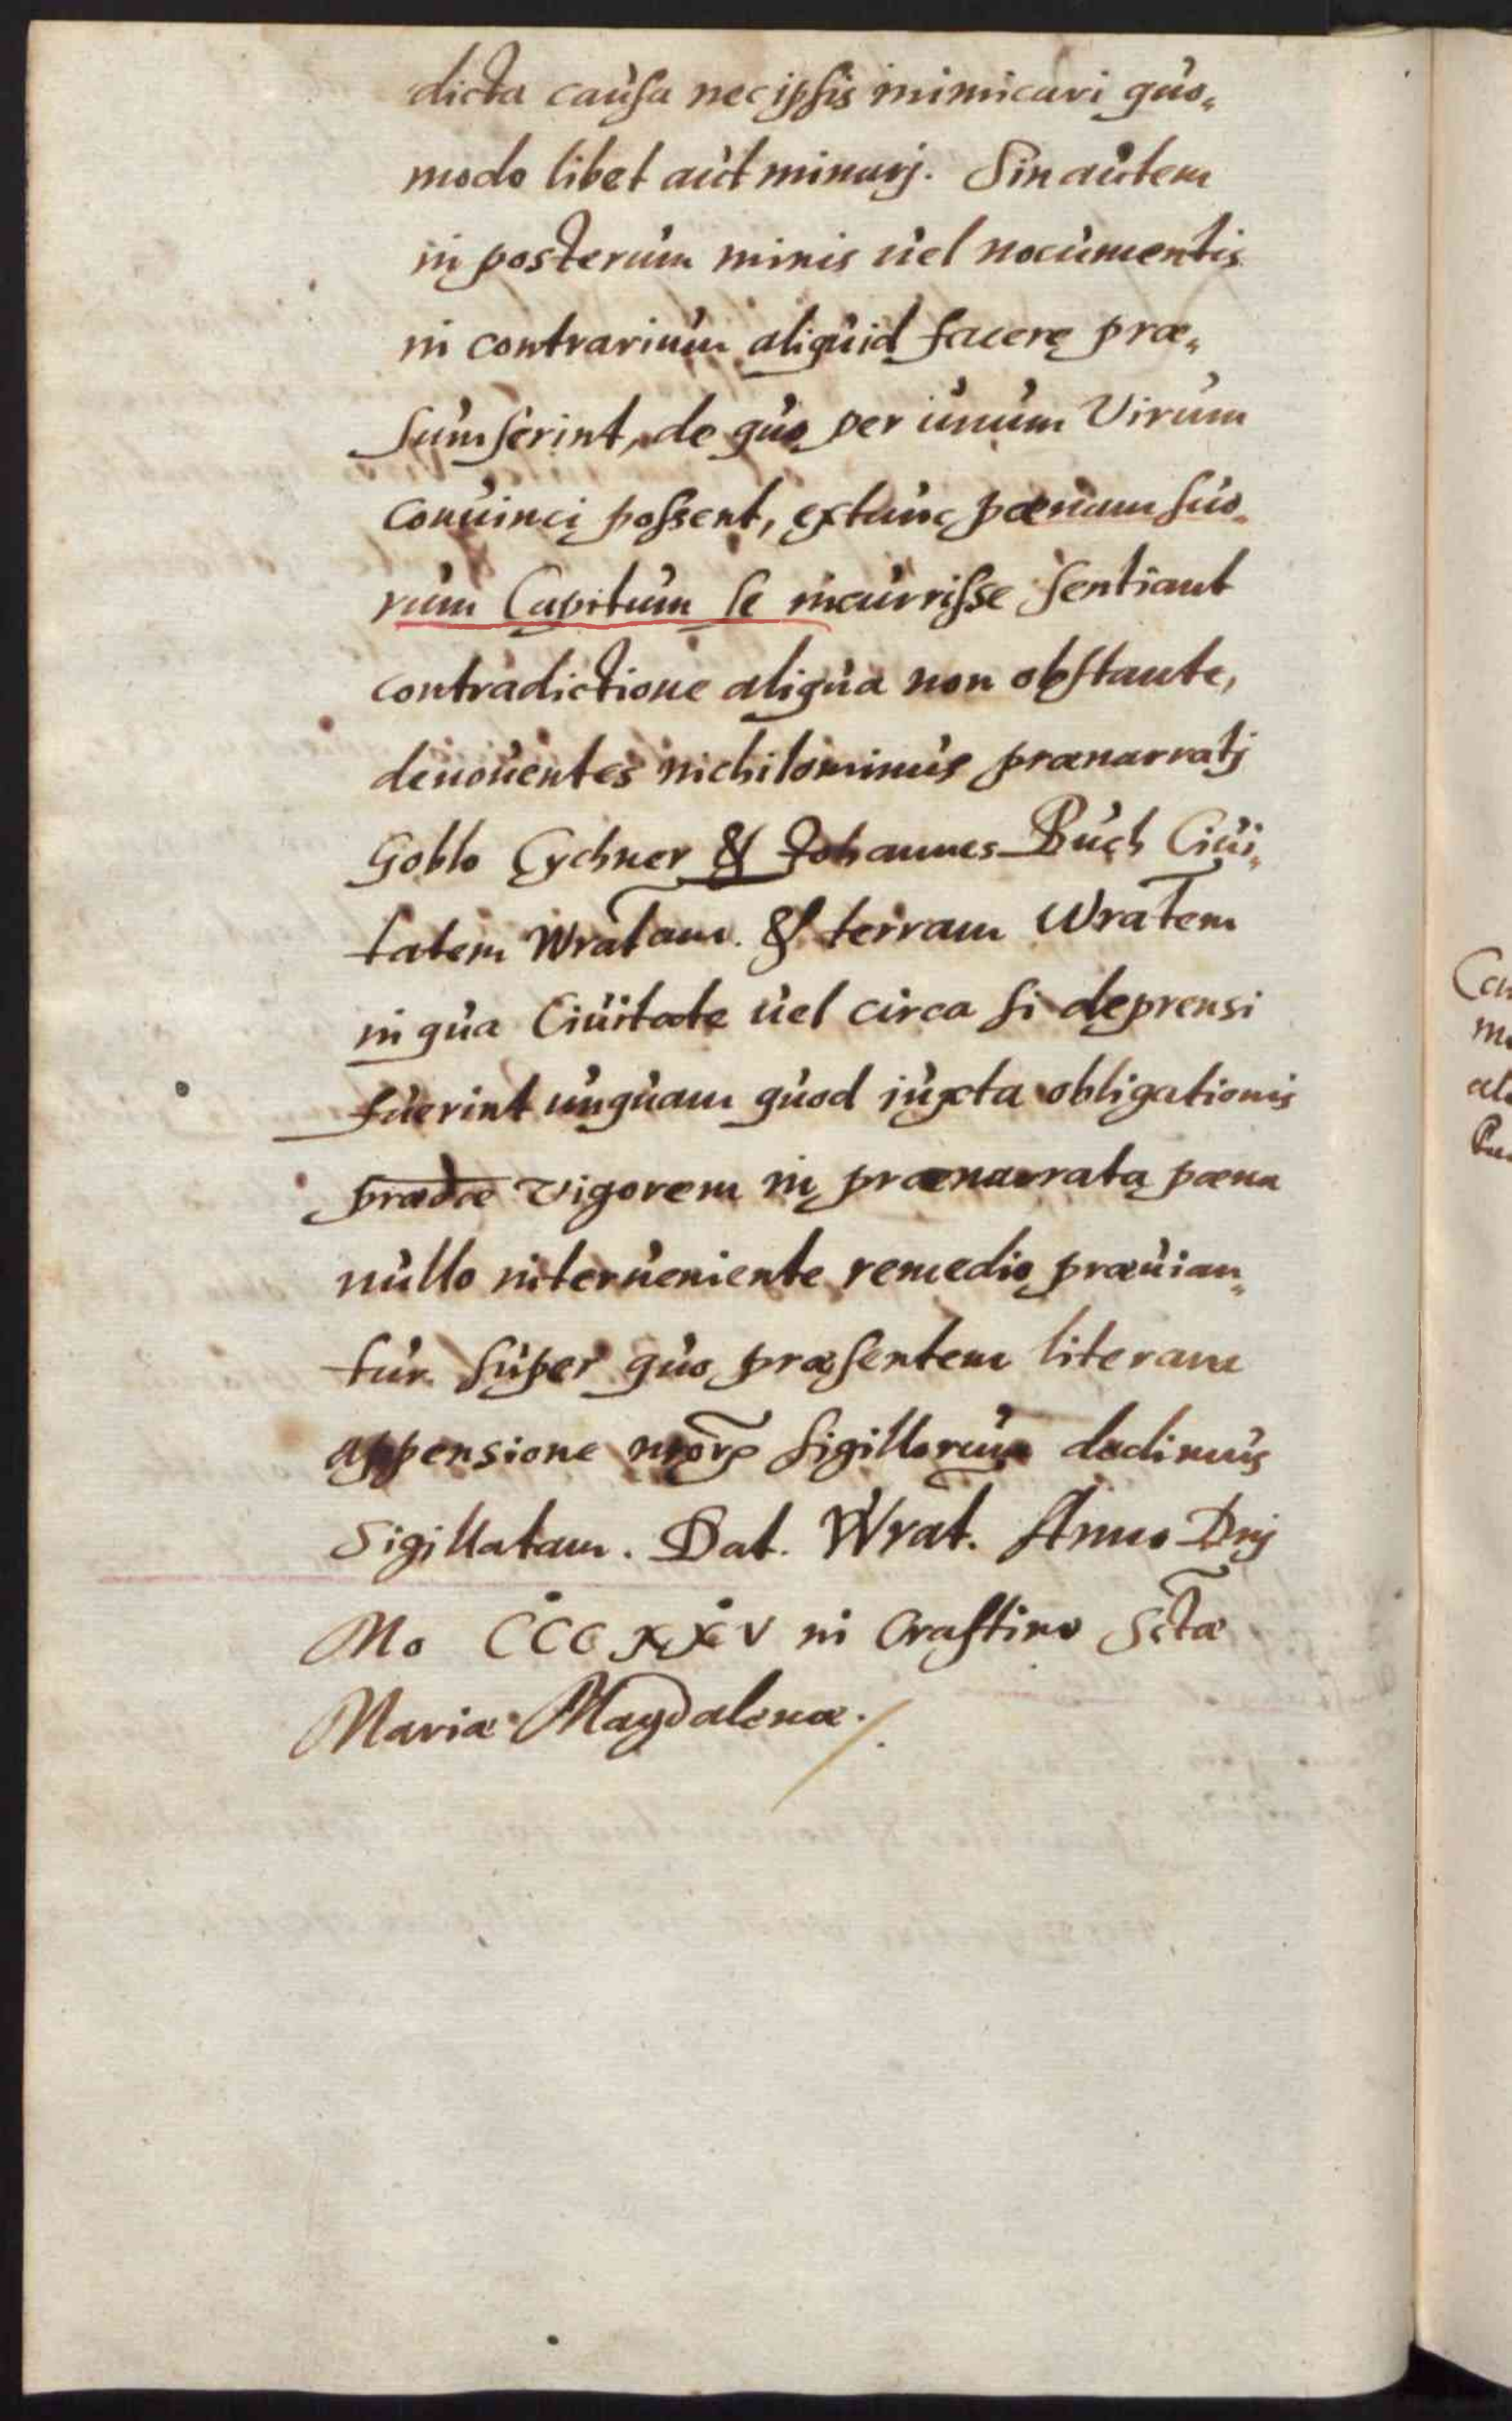 dicta causa nec ipsis inimicari quo„
modo libet aut minarj. Sin autem
in posterum minis uel nocumentis
in contrarium aliquid facere præ„
sumserint, de quo per unum Virum
conuinci possent, extunc pœnam suo„
rum Capitum se incurrisse sentiant
contradictione aliqua non obstante,
deuouentes nichilominus prænarratj
Goblo Cychner & Johannes Buch Ciui„
tatem Wratam. & terram Wratem
in qua Ciuitate uel circa si deprensi
fuerint unquam quod juxta obligationis
prædæ vigorem in prænarrata pœna
nullo interueniente remedio præuian„
tur super quo præsentem literam
appensione nrōr sigillorum dedimus
Sigillatam. Dat. Wrat. Anno Dnj
Mo CCC xxv in Crastino Sctæ
Mariæ Magdalenæ.